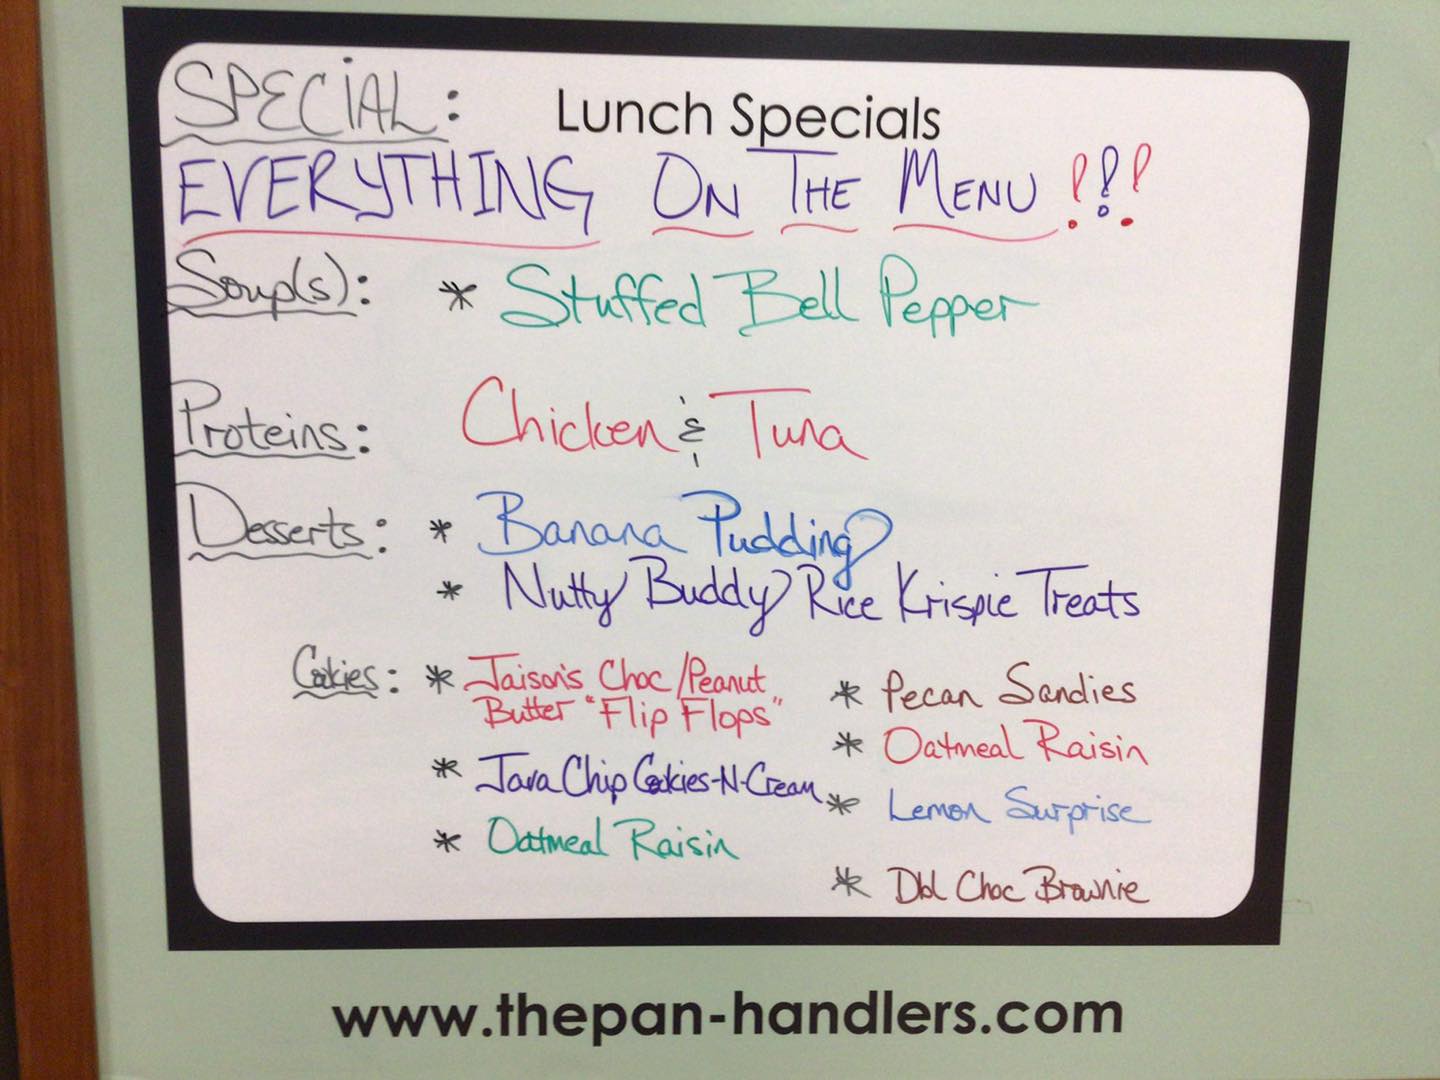 SPECIAL: Lunch Specials
EVERYTHING ON THE MENU!!!
Soup(s): * Stuffed Bell Pepper
Proteins: Chicken & Tuna
Desserts: * Banana Pudding
* Nutty Buddy Rice Krispie Treats
Cookies: * Jaison's Choc/Peanut
Butter "Flip Flops"
* Java Chip Cookies-N-Cream
* Oatmeal Raisin
* Pecan Sandies
* Oatmeal Raisin
* Lemon Surprise
* Dbl Choc Brownie
www.thepan-handlers.com